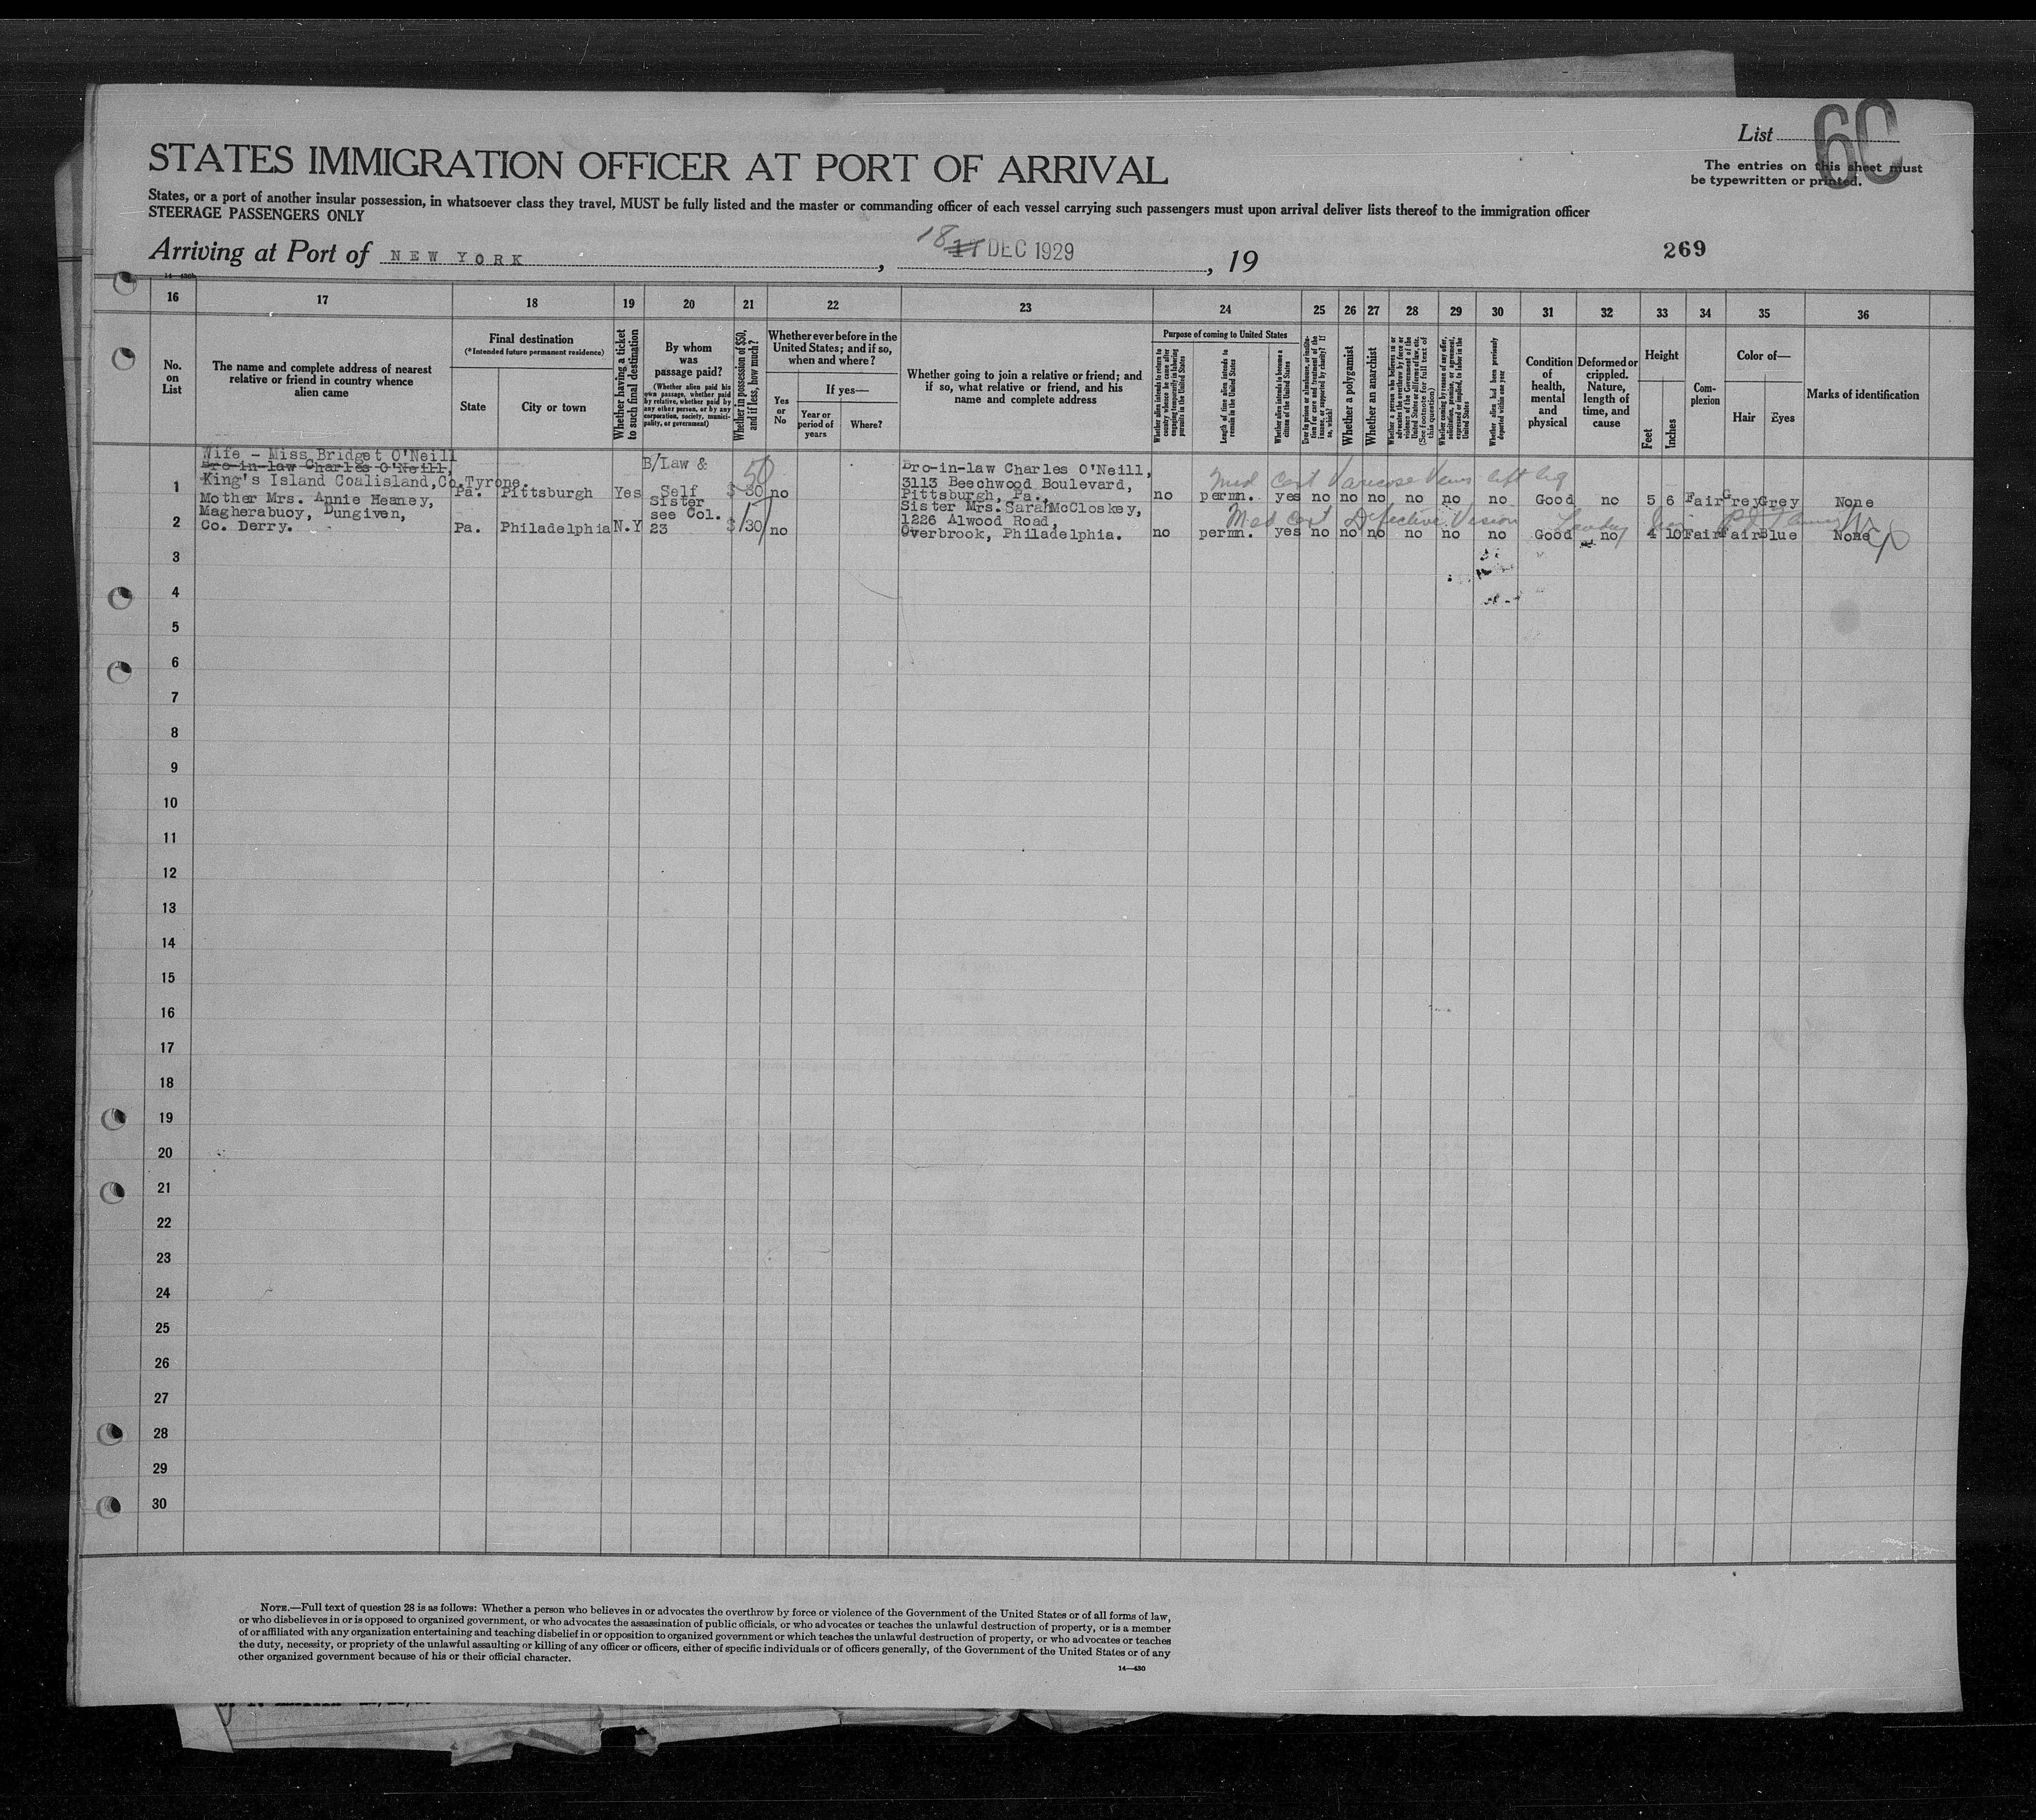 List 60
STATES IMMIGRATION OFFICER AT PORT OF ARRIVAL
The entries on this sheet must
be typewritten or printed.
States, or a port of another insular possession, in whatsoever class they travel, MUST be fully listed and the master or commanding officer of each vessel carrying such passengers must upon arrival deliver lists thereof to the immigration officer
STEERAGE PASSENGERS ONLY
Arriving at Port of NEW YORK, 18 17 DEC 1929, 19
269
14—430b
16 17 18 19 20 21 22 23 24 25 26 27 28 29 30 31 32 33 34 35 36
No. on List
The name and complete address of nearest relative or friend in country whence alien came
Final destination
(*Intended future permanent residence)
State
City or town
Whether having a ticket to such final destination
By whom was passage paid?
(Whether alien paid his own passage, whether paid by relative, whether paid by any other person, or by any corporation, society, municipality, or government)
Whether in possession of $50, and if less, how much?
Whether ever before in the United States; and if so, when and where?
Yes or No
If yes—
Year or period of years
Where?
Whether going to join a relative or friend; and if so, what relative or friend, and his name and complete address
Purpose of coming to United States
Whether alien intends to return to country whence he came after engaging temporarily in laboring pursuits in the United States
Length of time alien intends to remain in the United States
Whether alien intends to become a citizen of the United States
Ever in prison or almshouse, or institution for care and treatment of the insane, or supported by charity? If so, which?
Whether a polygamist
Whether an anarchist
Whether a person who believes in or advocates the overthrow by force or violence of the Government of the United States or all forms of law, etc. (See footnote for full text of this question)
Whether coming by reason of any offer, solicitation, promise, or agreement, expressed or implied, to labor in the United States
Whether alien had been previously deported within one year
Condition of health, mental and physical
Deformed or crippled. Nature, length of time, and cause
Height
Feet
Inches
Complexion
Color of—
Hair
Eyes
Marks of identification
Wife - Miss Bridget O'Neill
Bro-in-law Charles O'Neill,
King's Island Coalisland, Co.Tyrone.
1 Pa. Pittsburgh Yes B/Law & Self $ 30 50 no
Bro-in-law Charles O'Neill,
3113 Beechwood Boulevard,
Pittsburgh, Pa.,
Med Cert Varicose Veins left leg
no permn. yes no no no no no no Good no 5 6 Fair Grey Grey None
Mother Mrs. Annie Heaney,
Magherabuoy, Dungiven,
Co. Derry.
2 Pa. Philadelphia N.Y sister see Col. 23 $ 30 no
Sister Mrs. Sarah McCloskey,
1226 Alwood Road,
Overbrook, Philadelphia.
Med Cert Defective Vision
no permn. yes no no no no no no Good no 4 10 Fair Fair Blue None
3
4
5
6
7
8
9
10
11
12
13
14
15
16
17
18
19
20
21
22
23
24
25
26
27
28
29
30
NOTE.—Full text of question 28 is as follows: Whether a person who believes in or advocates the overthrow by force or violence of the Government of the United States or of all forms of law,
or who disbelieves in or is opposed to organized government, or who advocates the assassination of public officials, or who advocates or teaches the unlawful destruction of property, or is a member
of or affiliated with any organization entertaining and teaching disbelief in or opposition to organized government or which teaches the unlawful destruction of property, or who advocates or teaches
the duty, necessity, or propriety of the unlawful assaulting or killing of any officer or officers, either of specific individuals or of officers generally, of the Government of the United States or of any
other organized government because of his or their official character.
14—430